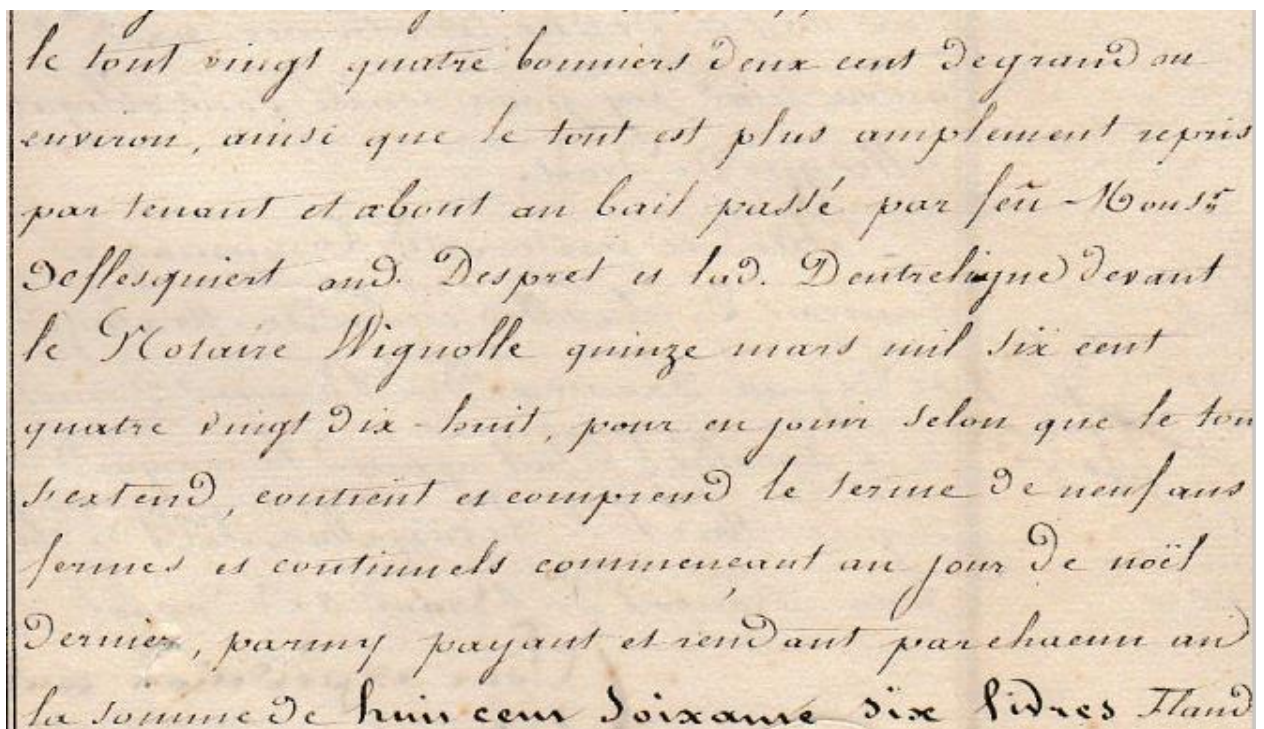 le tout vingt quatre bonniers deux cent degrand ou
environ, ainsi que le tout est plus amplement repris
par tenant et about au bail passé par feû Monsr
Deflesquiert aud. Despret et lad. Dentreligne devant
le Notaire Wignolle quinze mars mil six cent
quatre vingt dix-huit, pour en jouir selon que le tou
s'extend, contient et comprend le terme de neuf ans
fermes et continuels commencant au jour de noël
dernier, parmy payant et rendant par chacun an
la somme de huit cent soixante six livres Fland